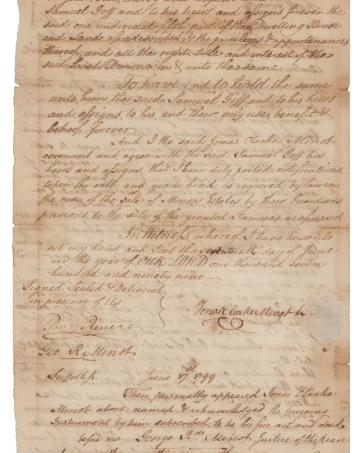 Samuel Goff and to his heirs and assigns forever the
said one undivided fifth part of the Dwelling House
and Lands afore described & the privileges & appurtenances
thereof, and all the right, title and interest of the
said in & unto the same.
To have and to hold the same
unto him the said Samuel Goff and to his heirs
and assigns, to his and their only use, benefit &
behoof forever.
And I the said Jonas Clarke Minot
covenant and agree with the said Samuel Goff his
heirs and assigns, that I have duly posted notifications,
taken the oath and given bond as required by law in
the case of the sale of Minors Estates by their Guardians
previous to the sale of the granted Premises as aforesaid.
In Witness whereof I have hereunto
set my hand and Seal this day of June
in the year of OUR LORD one thousand seven
hundred and ninety nine
Signed Sealed & Delivered
in presence of Us
Jonas Clarke Minot
Revere
Geo. R. Minot
Suffolk ss. June 17th 1799
Then personally appeared Jonas Clarke
Minot above named & acknowledged the foregoing
Instrument by him subscribed to be his free act and deed
before me George Minot Justice of the peace